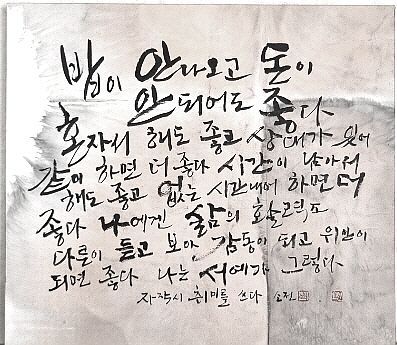 밥이 안나오고 돈이
안되어도 좋다
혼자서 해도 좋고 상대가 있어
같이 하면 더 좋다 시간이 남아서
해도 좋고 없는 시간내어 하면 더
좋다 나에겐 삶의 활력소
다들이 듣고 보아 감동이 되고 위안이
되면 좋다 나는 서예가 그렇다
자작시 취미를 쓰다 소전